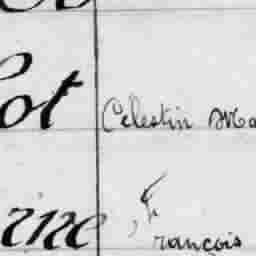 ot Celestin Ma
ine, François